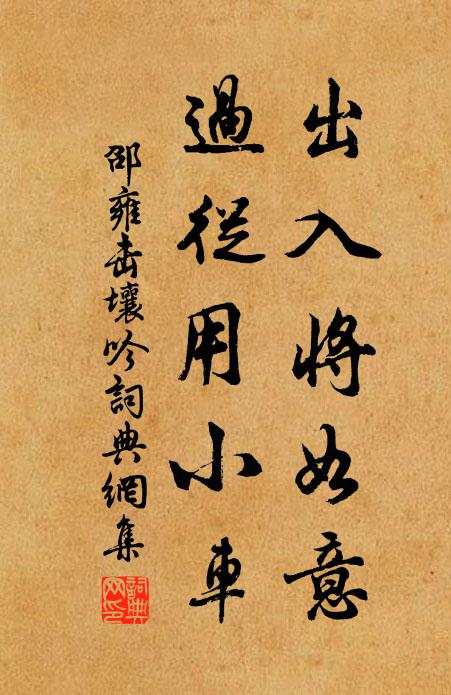 出入將如意
過從用小車
邵雍擊壤吟詞典網集
詞典網印